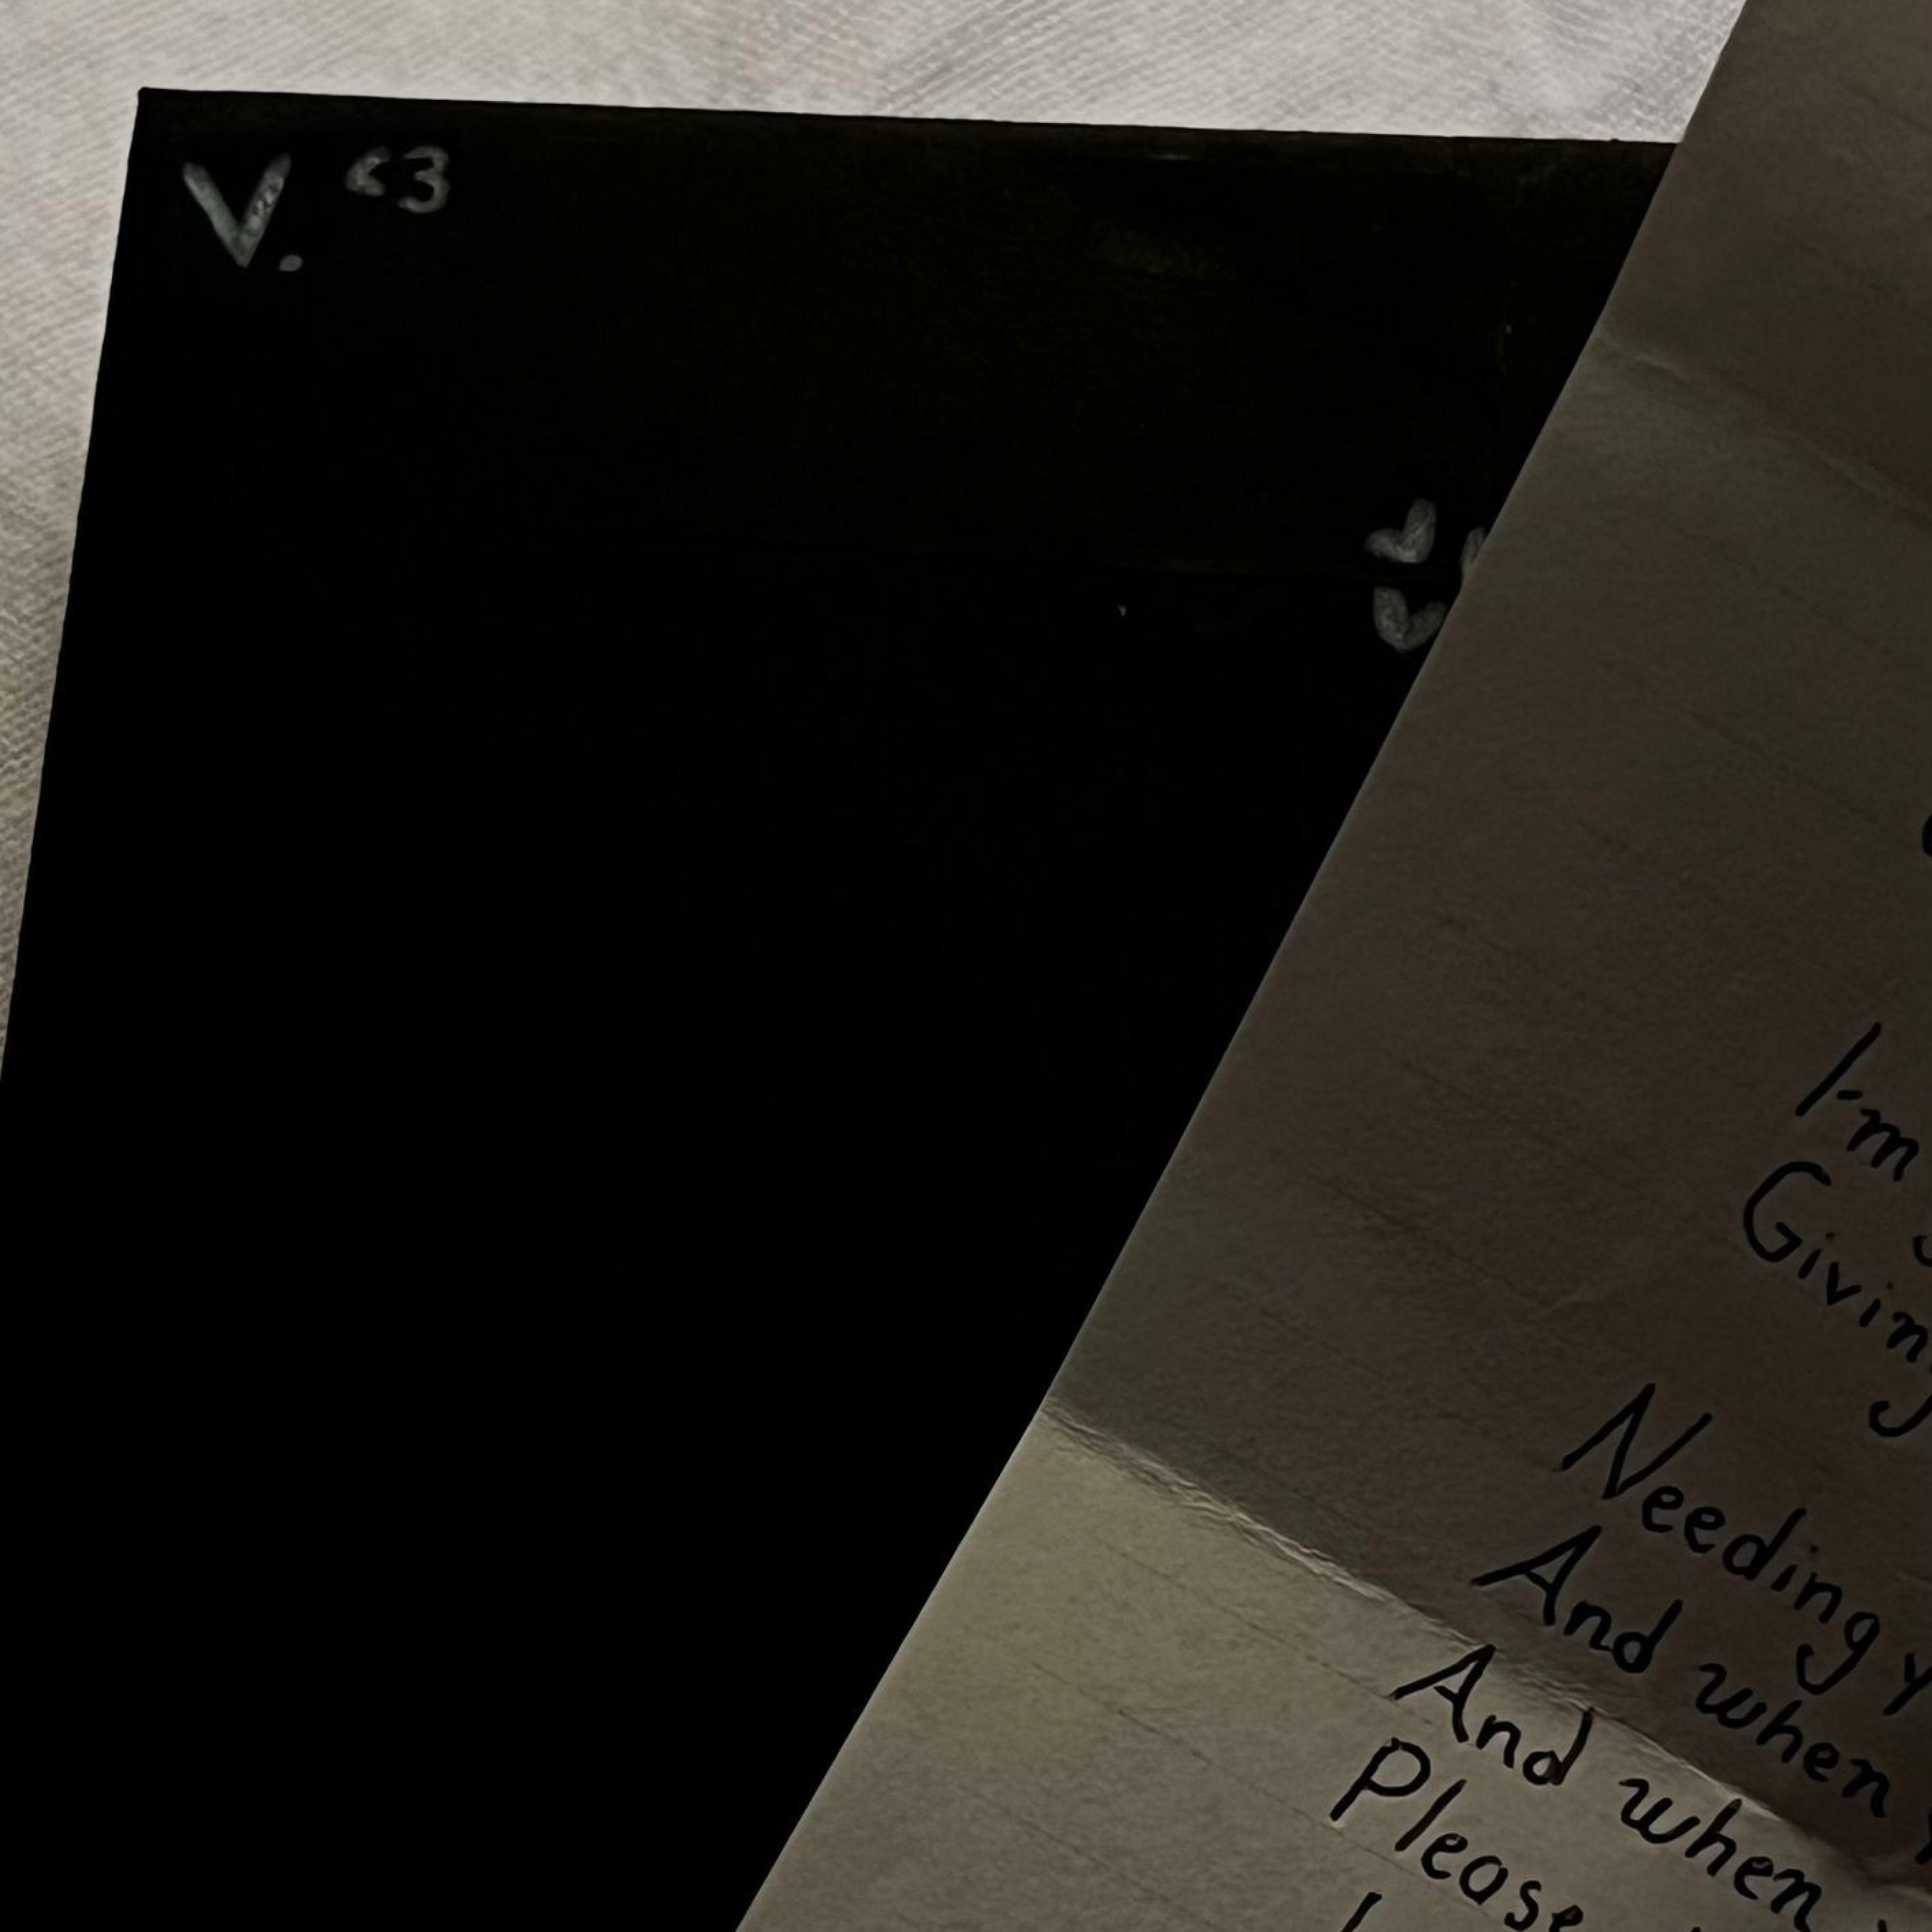 V. <3
I'm
Giving
Needing
And when
And when
Please